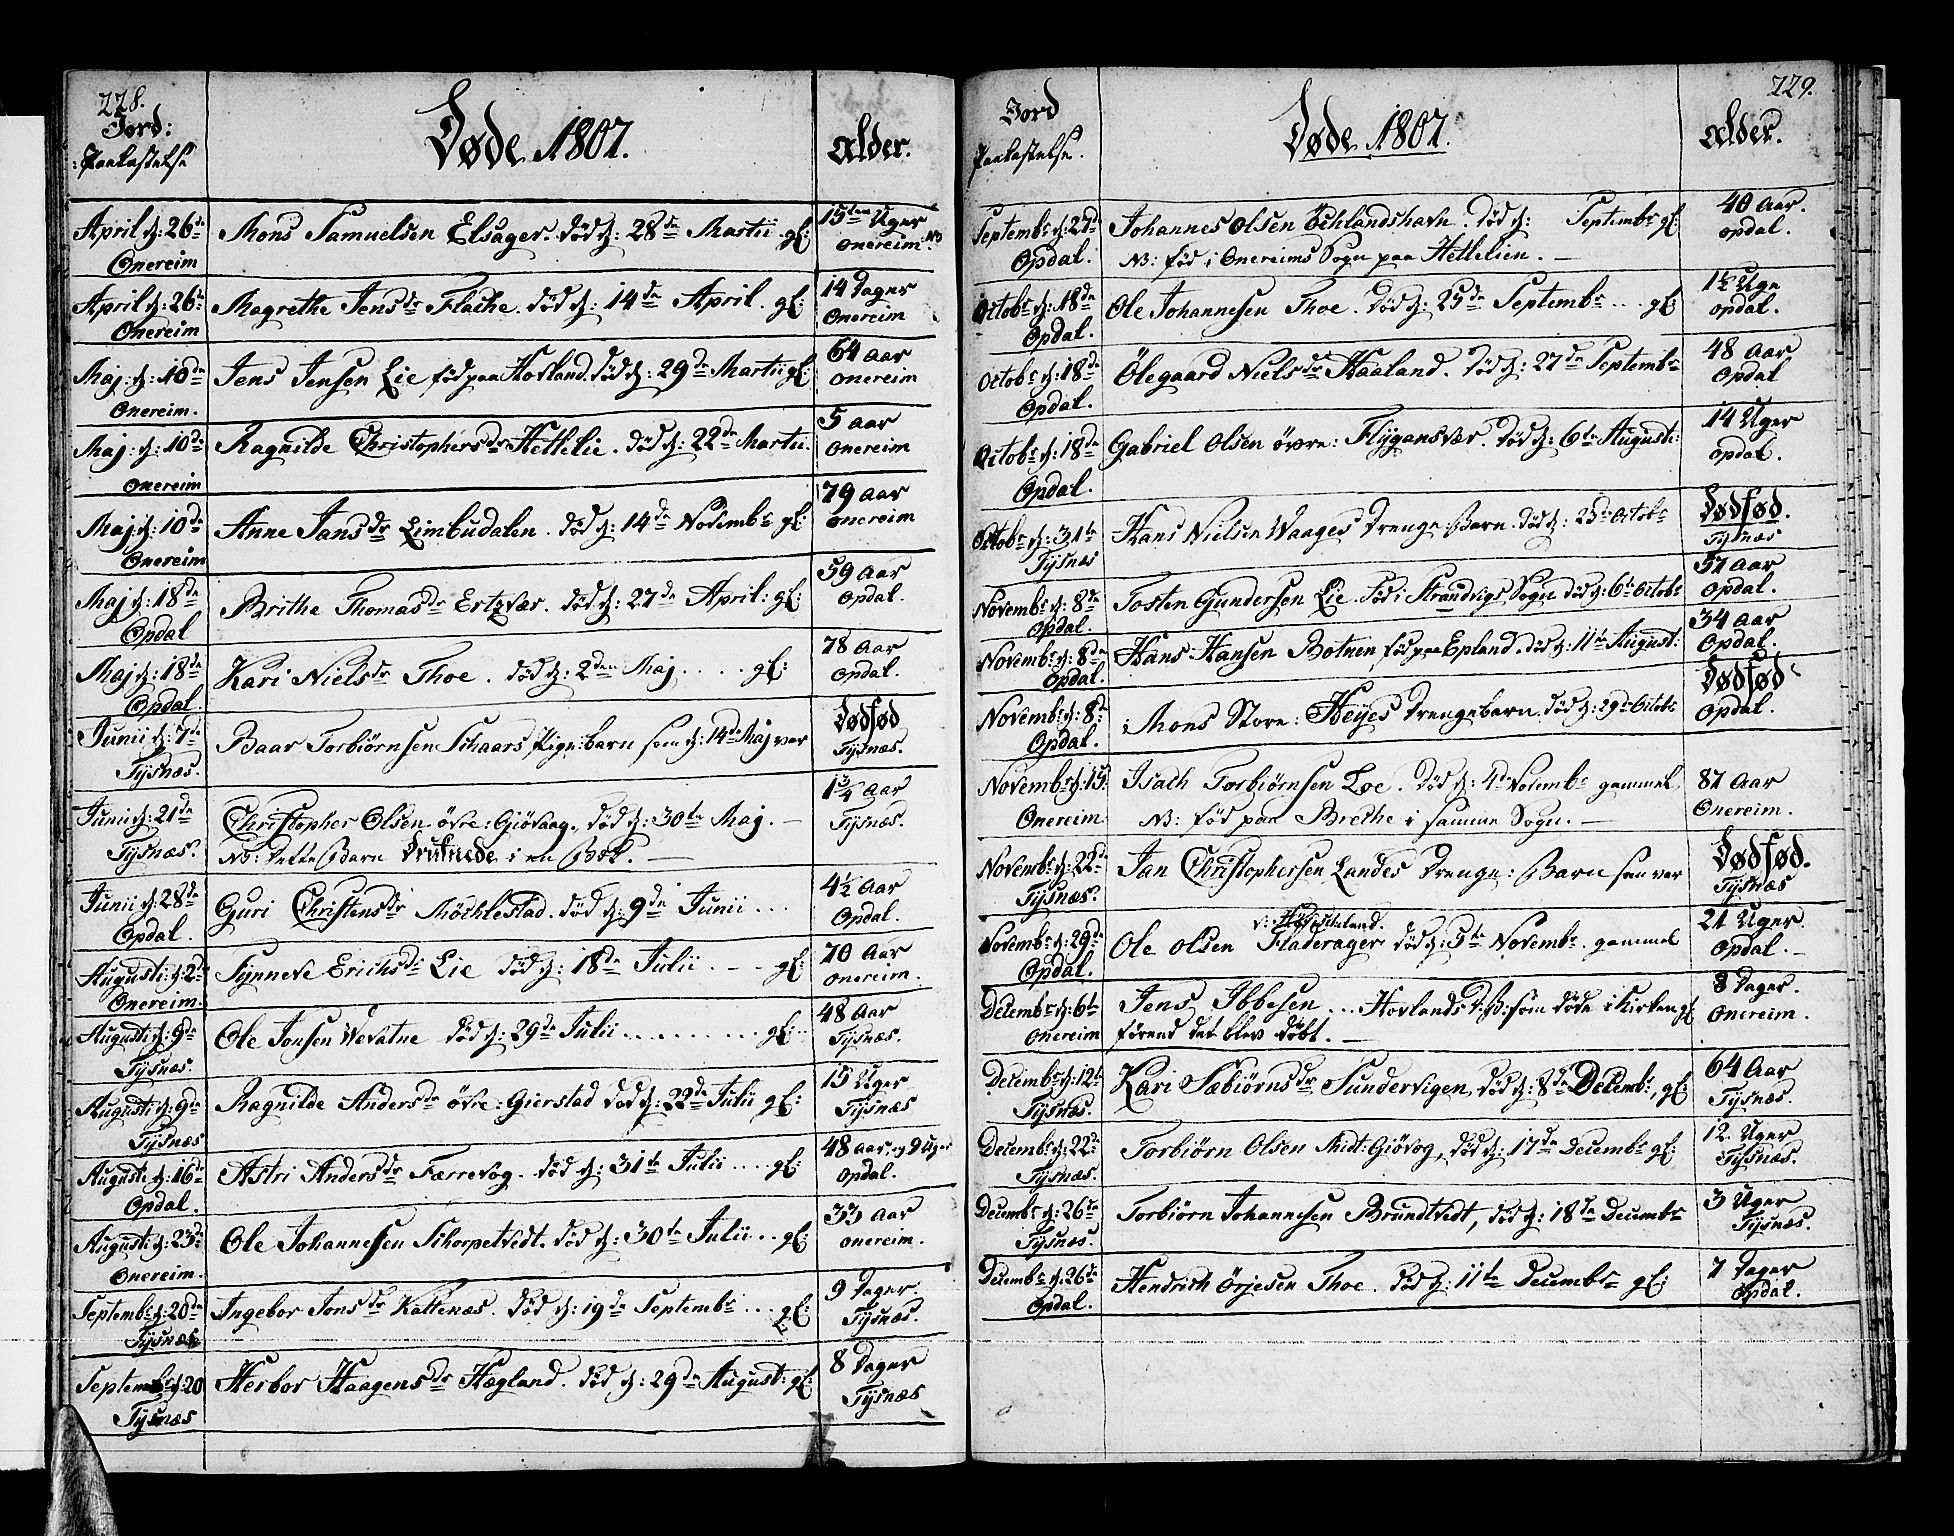 228.
Jord:
Paakastelse
Døde 1807.
Alder.
April d: 26de
Onereim
Mons Samuelsen Elsager. død d: 28de Martii gl:
15ten Uger
Onereim
April d: 26de
Onereim
Magrethe Jensdr Flache. død d: 14de April. gl:
14 Dager
Onereim
Maj: d: 10de
Onereim.
Jens Jensen Lie fød paa Hovland. død d: 29de Martii gl:
64 Aar
Onereim
Maj: d: 10de
Onereim
Ragnilde Christophersdr Hettelie. død d: 22de Martii.
5 Aar
Onereim
Maj: d: 10de
Onereim
Anne Jansdr Limbudalen. død d: 14de Novembr gl:
79 Aar
Onereim
Maj d: 18de
Opdal
Brithe Thomasdr Ertzvær. død d: 27de April: gl:
59 Aar
Opdal.
Maj d: 18de
Opdal
Kari Nielsdr Thoe. død d: 2den Maj.... gl:
78 Aar
Opdal.
Junii d: 7de
Tysnæs.
Baar Torbiørnsen Schaars Pigebarn som d: 14de Maj var
Dødfød
Tysnæs.
Junii d: 21de
Tysnæs.
Christopher Olsen øvre: Giøvaag. død d: 30te Maj. —
NB: Dette Barn Druknede i en Bek. —
1 3/4 Aar
Tysnæs.
Junii d: 28de
Opdal.
Guri Christensdr Möchlestad. død d: 9de Junii ...
4 1/2 Aar
Opdal.
Augusti d: 2de
Onereim.
Synneve Erichsdr Lie død d: 18de Julii . - - - gl:
70 Aar
Onereim.
Augusti d: 9de
Tysnæs.
Ole Jonsen Wevatne død d: 29de Julii ......... gl:
48 Aar
Tysnæs.
Augusti d: 9de
Tysnæs
Ragnilde Andersdr øvre: Gierstad død d: 22de Julii gl:
15 Uger
Tysnæs
Augusti d: 16de
Opdal.
Astri Andersdr Færrevog. død d: 31te Julii .... gl:
48 Aar, og 9 Uger
Opdal.
Augusti d: 23de
Onereim.
Ole Johannesen Schorpetvedt. død d: 30te Julii ... gl:
33 Aar
Onereim.
Septembr d: 20de
Tysnæs
Ingebor Jonsdr Kattenæs. død d: 19de Septembr ... gl:
9 Dager.
Tysnæs.
Septembr d: 20
Tysnæs
Herbor Haagensdr Hægland. død d: 29de August: gl:
8 Dager
Tysnæs
229.
Jord
Paakastelse.
Døde 1807.
Alder.
Septembr d: 27de
Opdal.
Johannes Olsen Echlandshavn. død d: Septembr gl
NB: fød i Onereims Sogn paa Hettelien. —
40 Aar.
Opdal.
Octobr d: 18de
Opdal.
Ole Johannesen Thoe. død d: 25de Septembr .... gl:
1 1/2 Uge
Opdal.
Octobr d: 18de
Opdal.
Ölegaard Nielsdr Haaland. død d: 27de Septembr
48 Aar
Opdal
Octobr d: 18de
Opdal.
Gabriel Olsen øvre: Flygansvær. død d: 6te Augusti:
14 Uger
Opdal.
Octobr d: 31te
Tysnæs
Hans Nielsen Waages Drenge: Barn. død d: 25de Octobr
Dødfød.
Tysnæs
Novembr d: 8de
Opdal.
Tosten Gundersen Lie. fød i Strandvigs Sogn død d: 6te Octobr
57 Aar
Opdal.
Novembr d: 8de
Opdal.
Hans Hansen Botnen, fød paa Epland. død d: 11te August:
34 Aar
Opdal.
Novembr d: 8de
Opdal.
Mons Store: Heyes Drengebarn. død d: 29de Octobr
Dødfød
Opdal.
Novembr d: 15.
Onereim
Isach Torbiørnsen Loe. død d: 4de Novembr gammel
NB: fød paa Brethe i samme Sogn. —
87 Aar
Onereim.
Novembr d: 22de
Tysnæs.
Jan Christophersen Landes Drenge: Barn som var
Dødfød.
Tysnæs
Novembr d: 29de
Opdal.
Ole Olsen Fladerager død d: 5te Novembr. gammel
21 Uger.
Opdal. —
Decembr d: 6te
Onereim
Jens Ibbesen ... Hovlands D: B: som døde i Kirken gl
førend det blev döbt. —
8 Dager.
Onereim.
Decembr d: 12te
Tysnæs.
Kari Sæbiørnsdr Sundervigen, død d: 8de Decembr, gl:
64 Aar
Tysnæs.
Decembr d: 22de
Tysnæs.
Torbiörn Olsen Midt: Giövog, død d: 17de Decembr gl:
12. Uger
Tysnæs.
Decembr d: 26de
Tysnæs.
Torbiörn Johannesen Brundtvedt, død d: 18de Decembr
3 Uger
Tysnæs.
Decembr d: 26de
Opdal.
Hendrich Örjesen Thoe. død d: 11te Decembr gl:
7 Dager
Opdal.